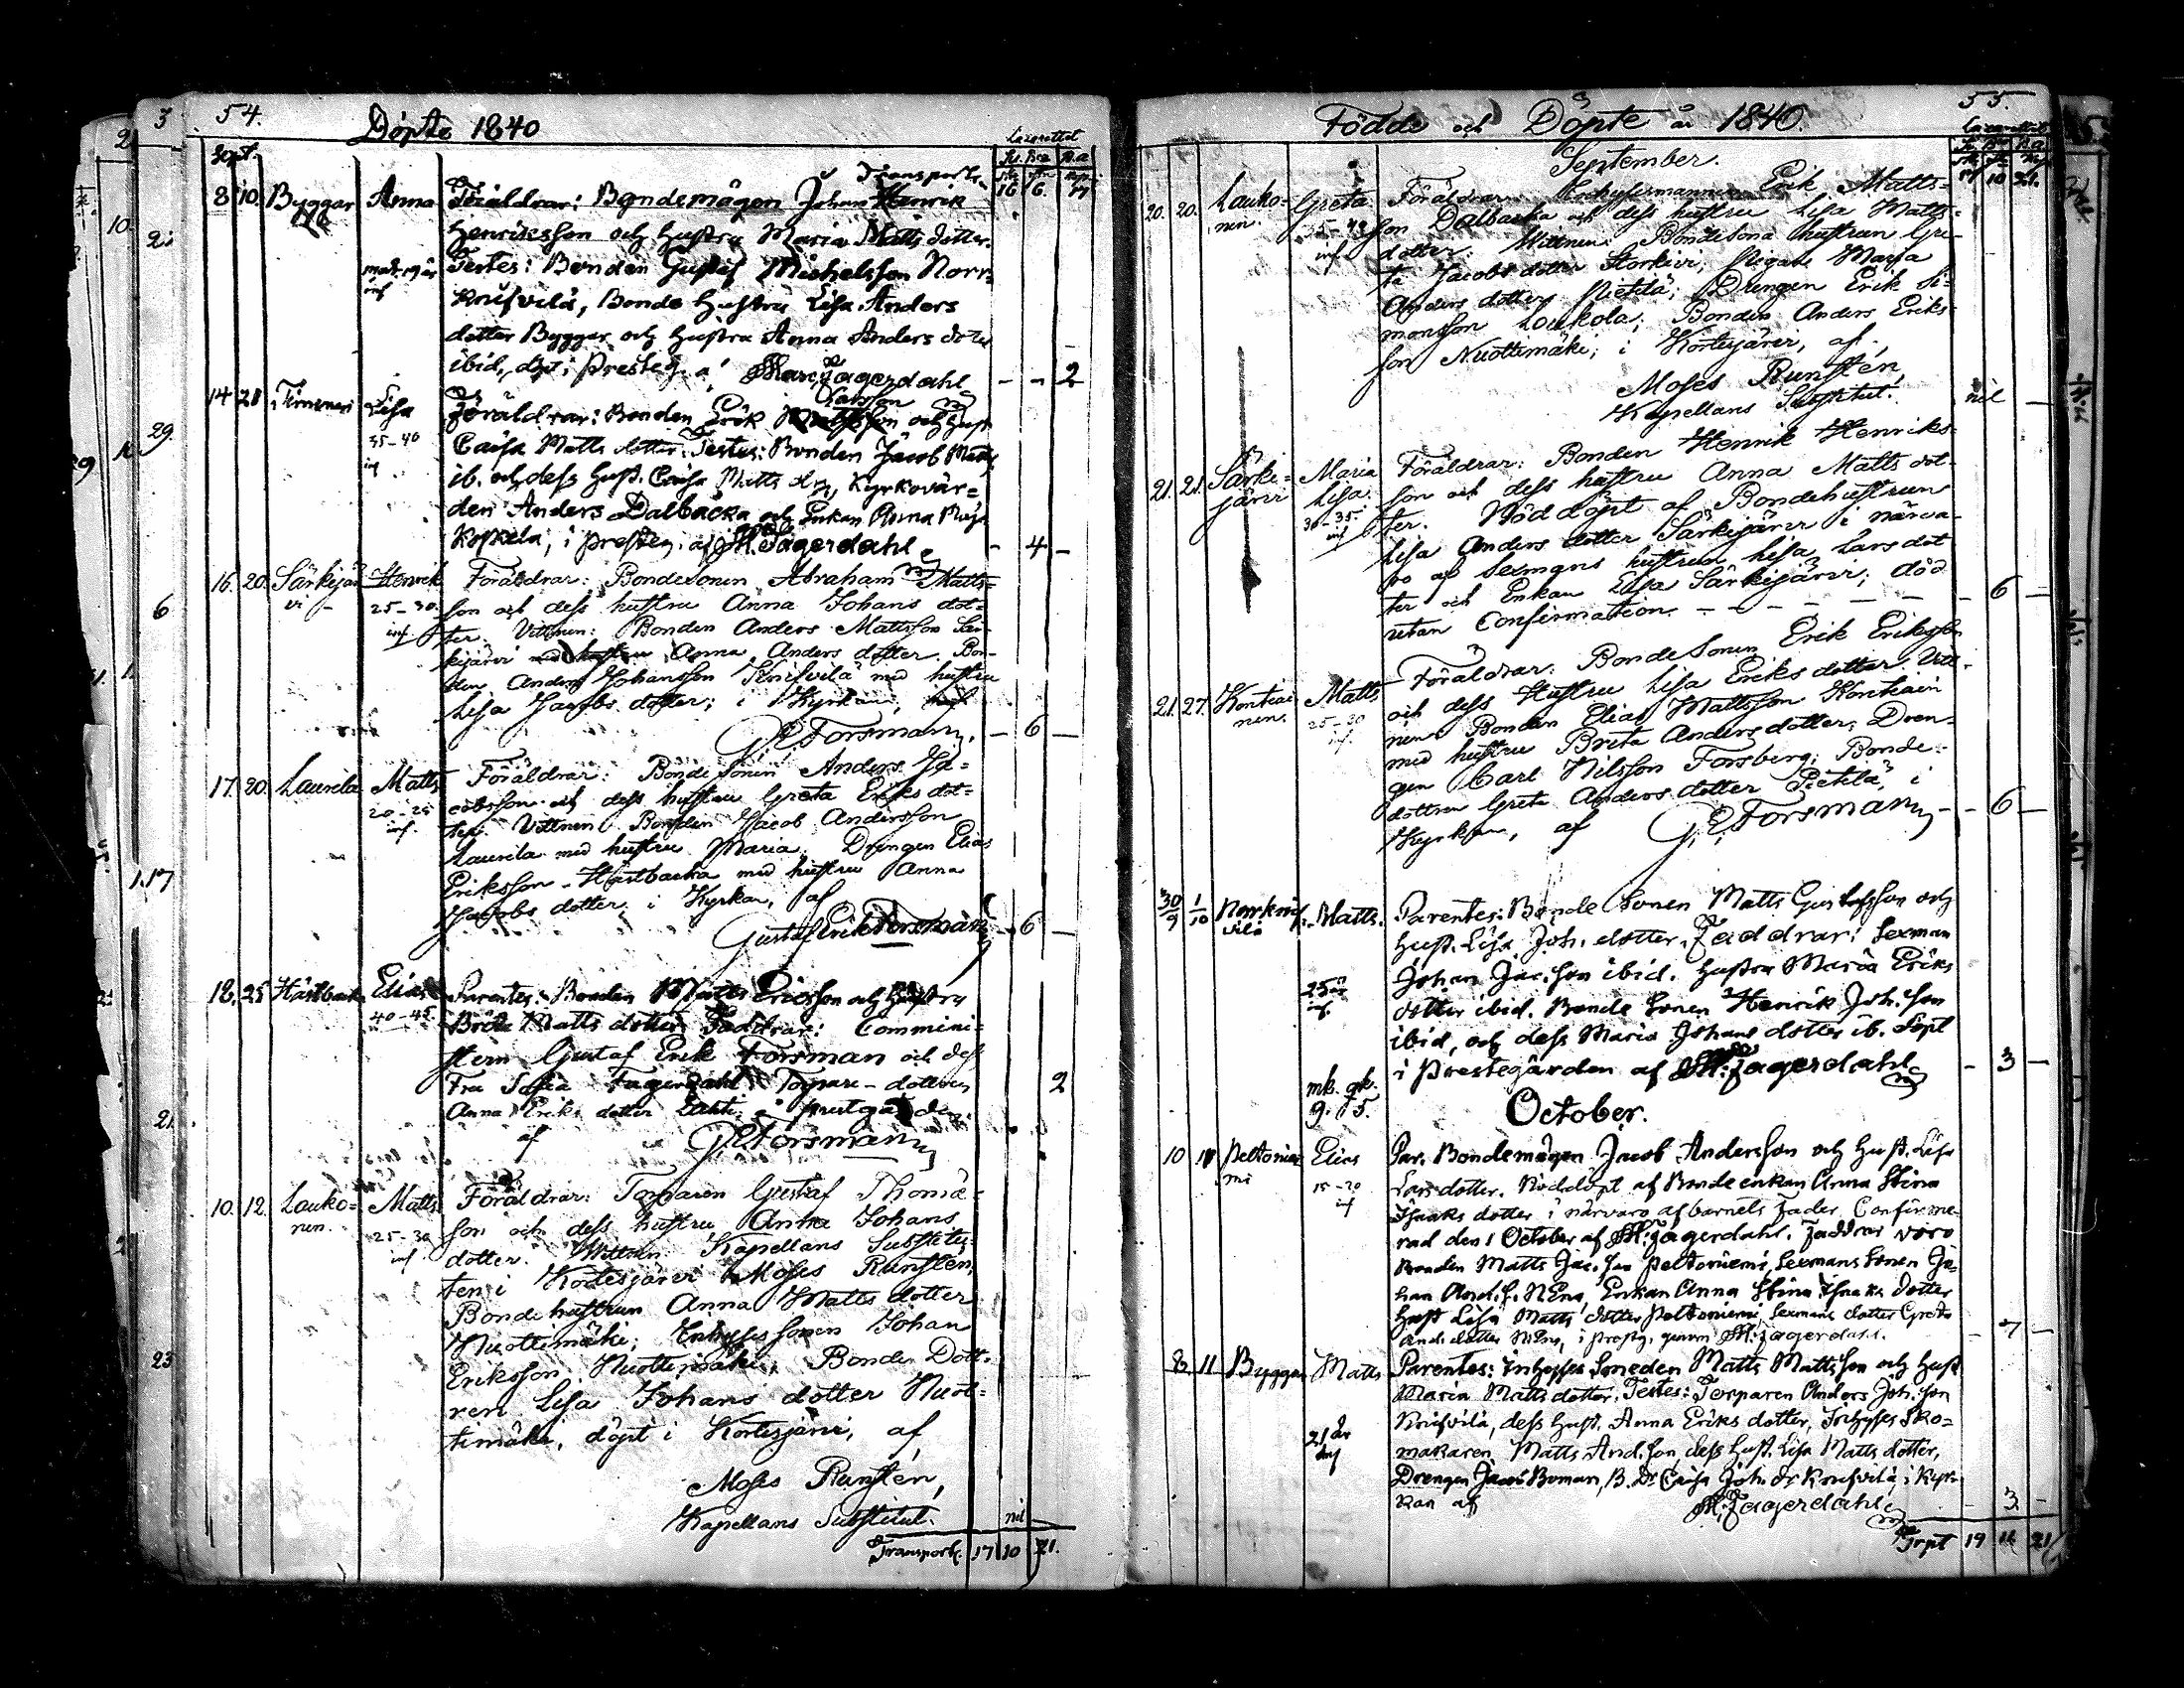 54.
Döpte 1840
Lazarettet
Sept.
Transport.
16 6
8 10. Byggar Anna Föräldrar: Bondemågen Johan Henrik
Henriksson och Hustru Maria Matts dotter.
Testes: Bonden Gustaf Michelsson Norr=
Knifvilä, Bonde Hustru Lisa Anders
dotter Byggar och Hustru Anna Anders doter
ibid, döpt i Presteg. af Fagerdahl
- - 2
14 21 Lisa Föräldrar: Bonden Erik Larsson och Hust
35-40
inf
Caisa Matts dotter. Testes: Bonden Jacob Matts
ib. och dess Hust. Caisa Matts dr, Kyrkovär=
den Anders Dalbacka och Enkan Anna
Koskela, i presteg. af Fagerdahl
- 4 -
16. 20. Särkijär Henrik Föräldrar: Bondesonen Abraham Matts-
vi 25-30.
inf
son och dess hustru Anna Johans dot-
ter. Vittnen: Bonden Anders Mattsson Sär-
kijärvi Anna Anders dotter. Bon-
den Anders Johansson Knifvilä med hustru
Lisa Jacobs dotter; i Kyrkan,
G E Forsman,
- 6 -
17. 20. Laurila Matts Föräldrar: Bonde Sonen Anders Ja=
20-25
inf.
cobsson och dess hustru Greta Eriks dot=
ter. Vittnen Bonden Jacob Andersson
Laurila med hustru Maria. Drengen Elias
Eriksson Hästbacka med hustru Anna
Jacobs dotter i Kyrkan, af
Gustaf Erik Forsman
- 6 -
18. 25 Hästbacka Elias Parentes: Bonden Matts Ericsson och Hustru
40-45
Brita Matts dotter. Faddrar: Commini-
stern Gustaf Erik Forsman och dess
Fru Sofia Fagerdahl Torpare-dottren
Anna Eriks dotter i prestgården.
2
af G E Forsman
10. 12. Louko= Matts Föräldrar: Torparen Gustaf Thoma-
nen. 25-30
inf
son och dess hustru Anna Johans
dotter. Vittnen: Kapellans Substitu-
ten i Kortesjärvi Moses Runstén,
Bondehustrun Anna Matts dotter
Nuottimäki; Inhyses sonen Johan
Eriksson Nuottimäki, Bonde Dott-
ren Lisa Johans dotter Nuot=
timäki, döpt i Kortesjärvi, af
Moses Runstén,
Kapellans Substitut.
nil
Transport. 17 10 21.
55.
Födde och Döpte år 1840.
Lazarettet
17 10 21.
September.
20. 20. Louko- Greta Föräldrar: Inhysesmannen Erik Matts=
nen. 35-40
inf
son Dalbacka och dess hustru Lisa Matts-
dotter. Vittnen: Bondesona hustrun Gre-
ta Jacobs dotter Storkivi; Pigan Maria
Anders dotter Pietilä; Drengen Erik Si=
monsson Loukola; Bonden Anders Eriks-
son Nuottimäki; i Kortesjärvi, af
Moses Runstén,
Kapellans Substitut.
nil
21. 21. Särki= Maria Föräldrar: Bonden Henrik Henriks-
järvi Lisa
30-35.
inf
son och dess hustru Anna Matts dot-
ter. Nöddöpt af Bondehustrun
Lisa Anders dotter Särkijärvi i närva-
ro af Sexmans hustrun Lisa Lars dot
ter och Enkan Lisa Särkijärvi; död
utan Confirmation.
- 6 -
21. 27. Kontiai Matts Föräldrar: Bonde Sonen Erik Eriksson
nen. 25-30
inf.
och dess Hustru Lisa Eriks dotter. Vitt-
nen Bonden Elias Mattsson Kontiain
med hustru Brita Anders dotter; Dren-
gen Carl Nilsson Forsberg; Bonde-
dottren Greta Anders dotter Pietilä, i
Kyrkan, af G E Forsman
- 6 -
30/9 1/10 Norrknif- Matts. Parentes: Bonde Sonen Matts Gustafsson och
vilä
25 år
inf.
Hust. Lisa Joh. dotter. Faddrar: Sexman
Johan Jac. son ibid. Hustru Maria Eriks
dotter ibid. Bonde Sonen Henrik Joh. son
ibid, och dess Maria Johans dotter ib. Döpt
i Prestegården af Fagerdahl
- 3 -
October.
10 Peltonie Elias Par. Bondemågen Jacob Andersson och Hust. Lisa
mi 15-20
inf
Lars dotter. Nöddöpt af Bonde enkan Anna Stina
Isaaks dotter i närvaro af barnets Fader. Confirme-
rad den 1 October af Fagerdahl. Faddrar voro
Bonden Matts Jac. son Peltoniemi, Sexmans Sonen Jo-
han And. s. Enkan Anna Stina Isaks dotter
Hust Lisa Matts dotter Peltoniemi, Sexmans dotter Greta
And. dotter i presteg. genom Fagerdahl.
- 7 -
8. 11 Byggar Matts Parentes: Inhyses Smeden Matts Mattsson och Hust
21 år
inf
Maria Matts dotter. Testes: Torparen Anders Joh. son
Knifvilä, dess Hust. Anna Eriks dotter, Inhyses Sko=
makaren Matts And. son, dess Hust. Lisa Matts dotter,
Drengen Jacob Boman, B. Dr Caisa Joh. dr Knifvilä, i Kyr-
kan af Fagerdahl
- 3 -
Trpt 19 21